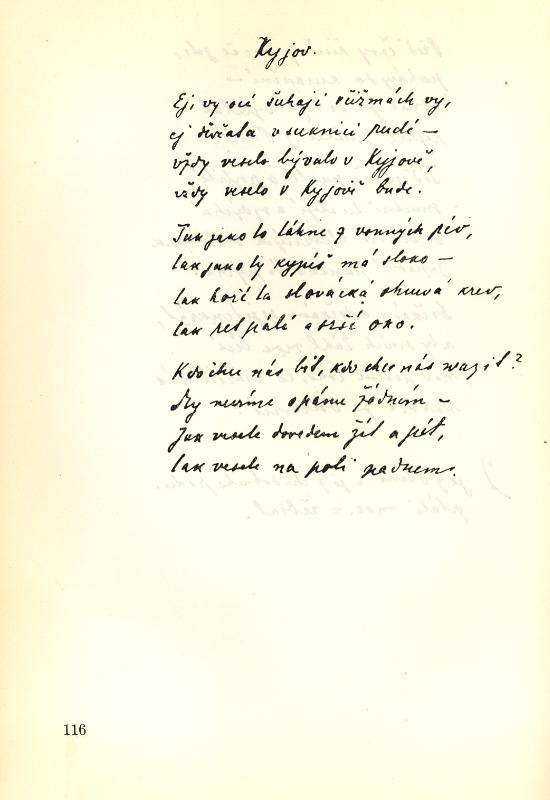 Kyjov.
Ej, vy oči šuhajů růžmách vy,
ej děvčata v suknici rudé –
vždy veselo bývalo v Kyjově,
vždy veselo v Kyjově bude.
Tak jako to táhne z vonných rév,
tak jako ty kypíš má sloko –
tak hoří ta slovácká ohnivá krev,
tak ret pálí a srší oko.
Kdo chce nás bít, kdo chce nás mazit?
My nevíme o pánu žádném –
Jak vesele dovedem žít a pít,
tak vesele na poli padnem.
116